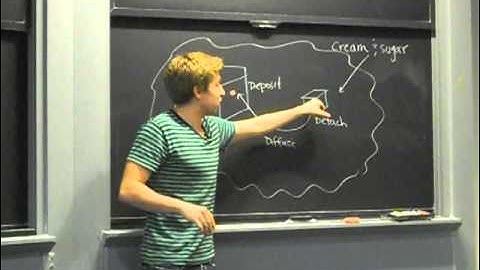 cream & sugar
Deposit
Detach
Diffuse